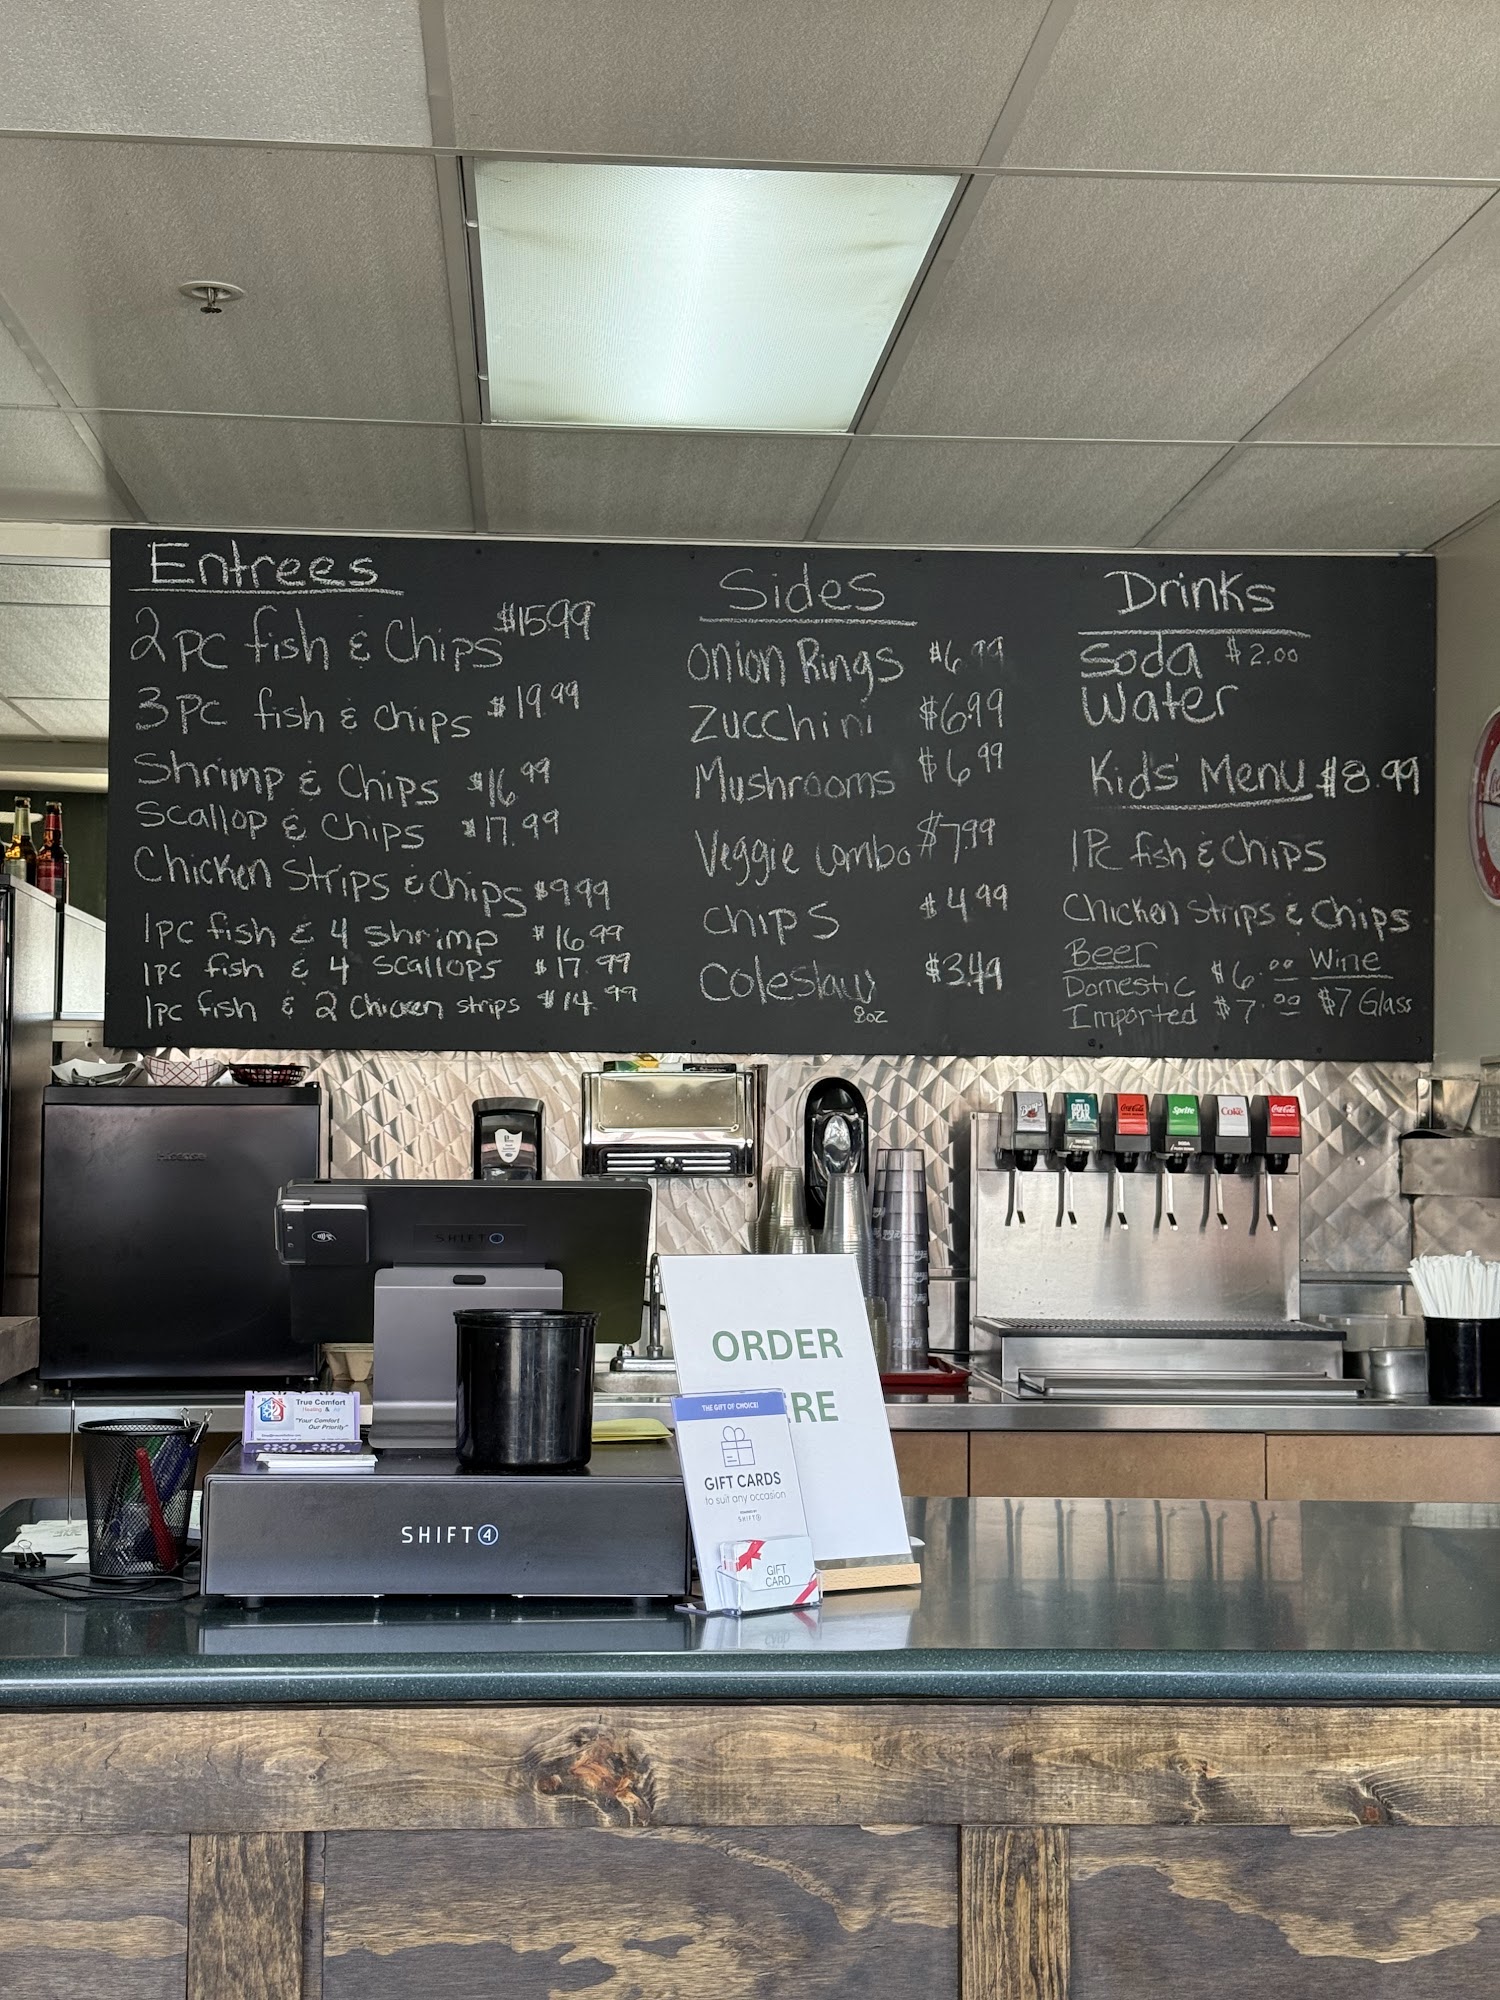 Entrees
2pc fish & Chips $15.99
3pc fish & chips $19.99
Shrimp & Chips $16.99
Scallop & Chips $17.99
Chicken Strips & Chips $9.99
1pc fish & 4 shrimp $16.99
1pc fish & 4 scallops $17.99
1pc fish & 2 Chicken strips $14.99
Sides
Onion Rings $6.99
Zucchini $6.99
Mushrooms $6.99
Veggie Combo $7.99
Chips $4.99
Coleslaw $3.49
8oz
Drinks
Soda $2.00
Water
Kids' Menu $8.99
1Pc fish & Chips
Chicken Strips & Chips
Beer
Domestic $6.00
Imported $7.00
Wine
$7 Glass
Hisense
Barq's
GOLD PEAK
Coca-Cola
Sprite
Coke
Coca-Cola
SHIFT4
ORDER
ERE
True Comfort
Heating & Air
"Your Comfort
Our Priority"
THE GIFT OF CHOICE!
GIFT CARDS
to suit any occasion
POWERED BY
SHIFT4
GIFT
CARD
SHIFT 4